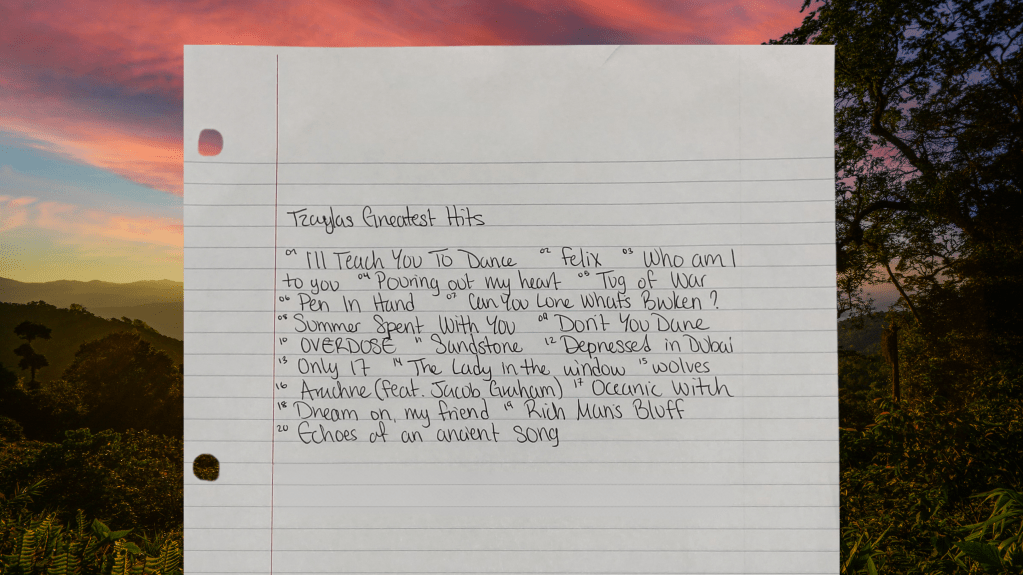 Tzaylas Greatest Hits
01 I'll Teach You To Dance 02 Felix 03 Who am I
to you 04 Pouring out my heart 05 Tug of War
06 Pen In Hand 07 Can You Love What's Broken?
08 Summer Spent With You 09 Don't You Dare
10 OVERDOSE 11 Sandstone 12 Depressed in Dubai
13 Only 17 14 The Lady in the window 15 wolves
16 Arachne (feat. Jacob Graham) 17 Oceanic Witch
18 Dream on, my friend 19 Rich Man's Bluff
20 Echoes of an ancient song